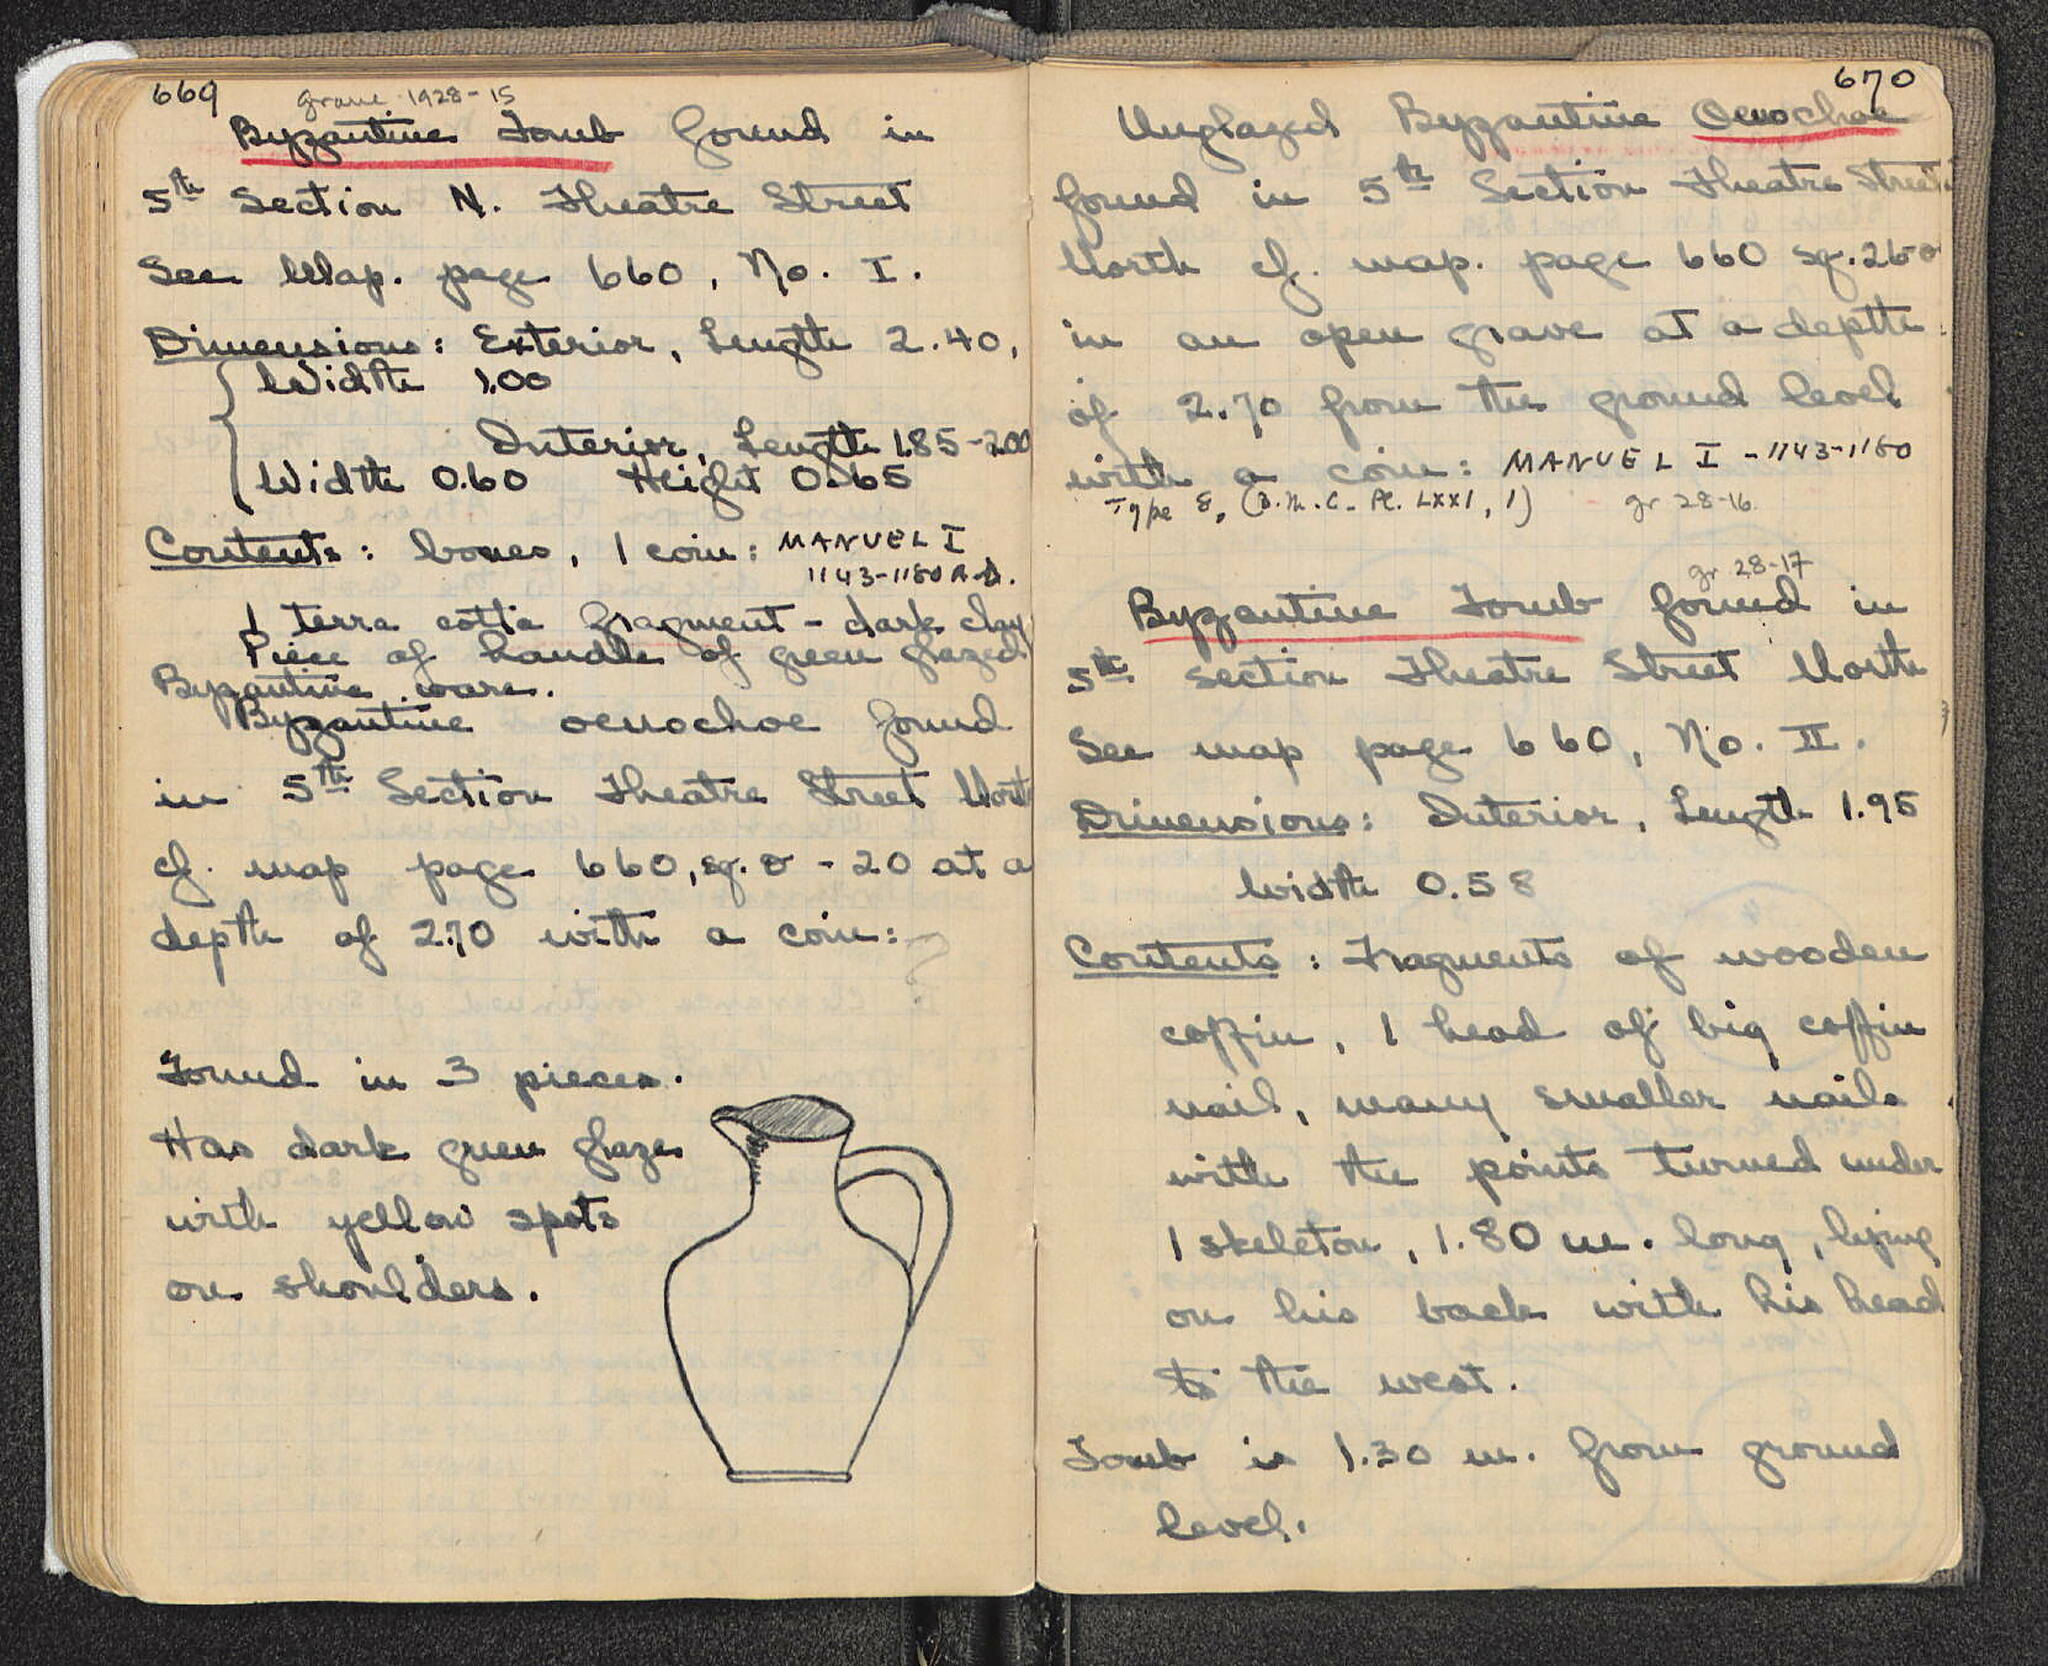 669
grave 1928-15
Byzantine Tomb found in
5th Section N. Theatre Street
See Map. page 660, No. I.
Dimensions: Exterior, Length 2.40,
Width 1.00
Interior, Length 1.85-2.00
Width 0.60 Height 0.65
Contents: bones, 1 coin: MANUEL I
1143-1180 A.D.
1 terra cotta fragment - dark clay
Piece of handle of green glazed
Byzantine ware.
Byzantine oenochoe found
in 5th Section Theatre Street North
cf. map page 660, sq. 0 - 20 at a
depth of 2.70 with a coin:
Found in 3 pieces.
Has dark green glaze
with yellow spots
on shoulders.
670
Unglazed Byzantine Oenochoe
found in 5th Section Theatre Street
North cf. map. page 660 sq.
in an open grave at a depth
of 2.70 from the ground level
with a coin: MANUEL I - 1143-1180
Type 8, (B.M.C. Pl. LXXI, 1) gr 28-16
gr 28-17
Byzantine Tomb found in
5th section Theatre Street North
See map page 660, No. II.
Dimensions: Interior, Length 1.95
Width 0.58
Contents: Fragments of wooden
coffin, 1 head of big coffin
nail, many smaller nails
with the points turned under
1 skeleton, 1.80 m. long, lying
on his back with his head
to the west.
Tomb is 1.30 m. from ground
level.